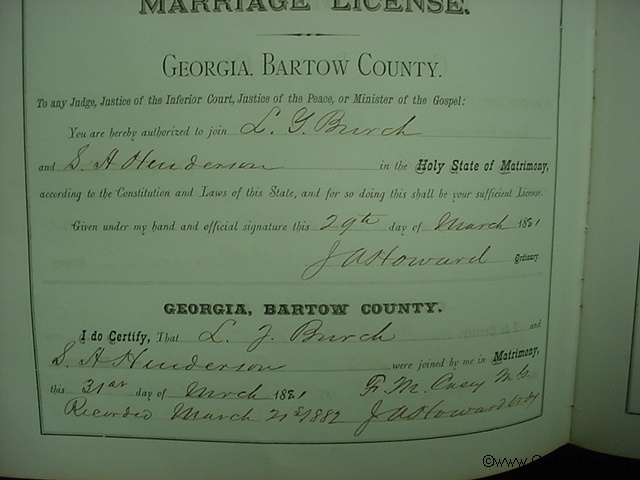 MARRIAGE LICENSE.
GEORGIA, BARTOW COUNTY.
To any Judge, Justice of the Inferior Court, Justice of the Peace, or Minister of the Gospel:
You are hereby authorized to join L. G. Burch
and S. A Henderson in the Holy State of Matrimony,
according to the Constitution and Laws of this State, and for so doing this shall be your sufficient License.
Given under my hand and official signature this 29th day of March 1881
J A Howard Ordinary.
GEORGIA, BARTOW COUNTY.
I do Certify, That L. J. Burch and
S. A Henderson were joined by me in Matrimony,
this 31st day of March 1881 F. M. Casey M. G.
Recorded March 1882 J A Howard Ordy
©www.